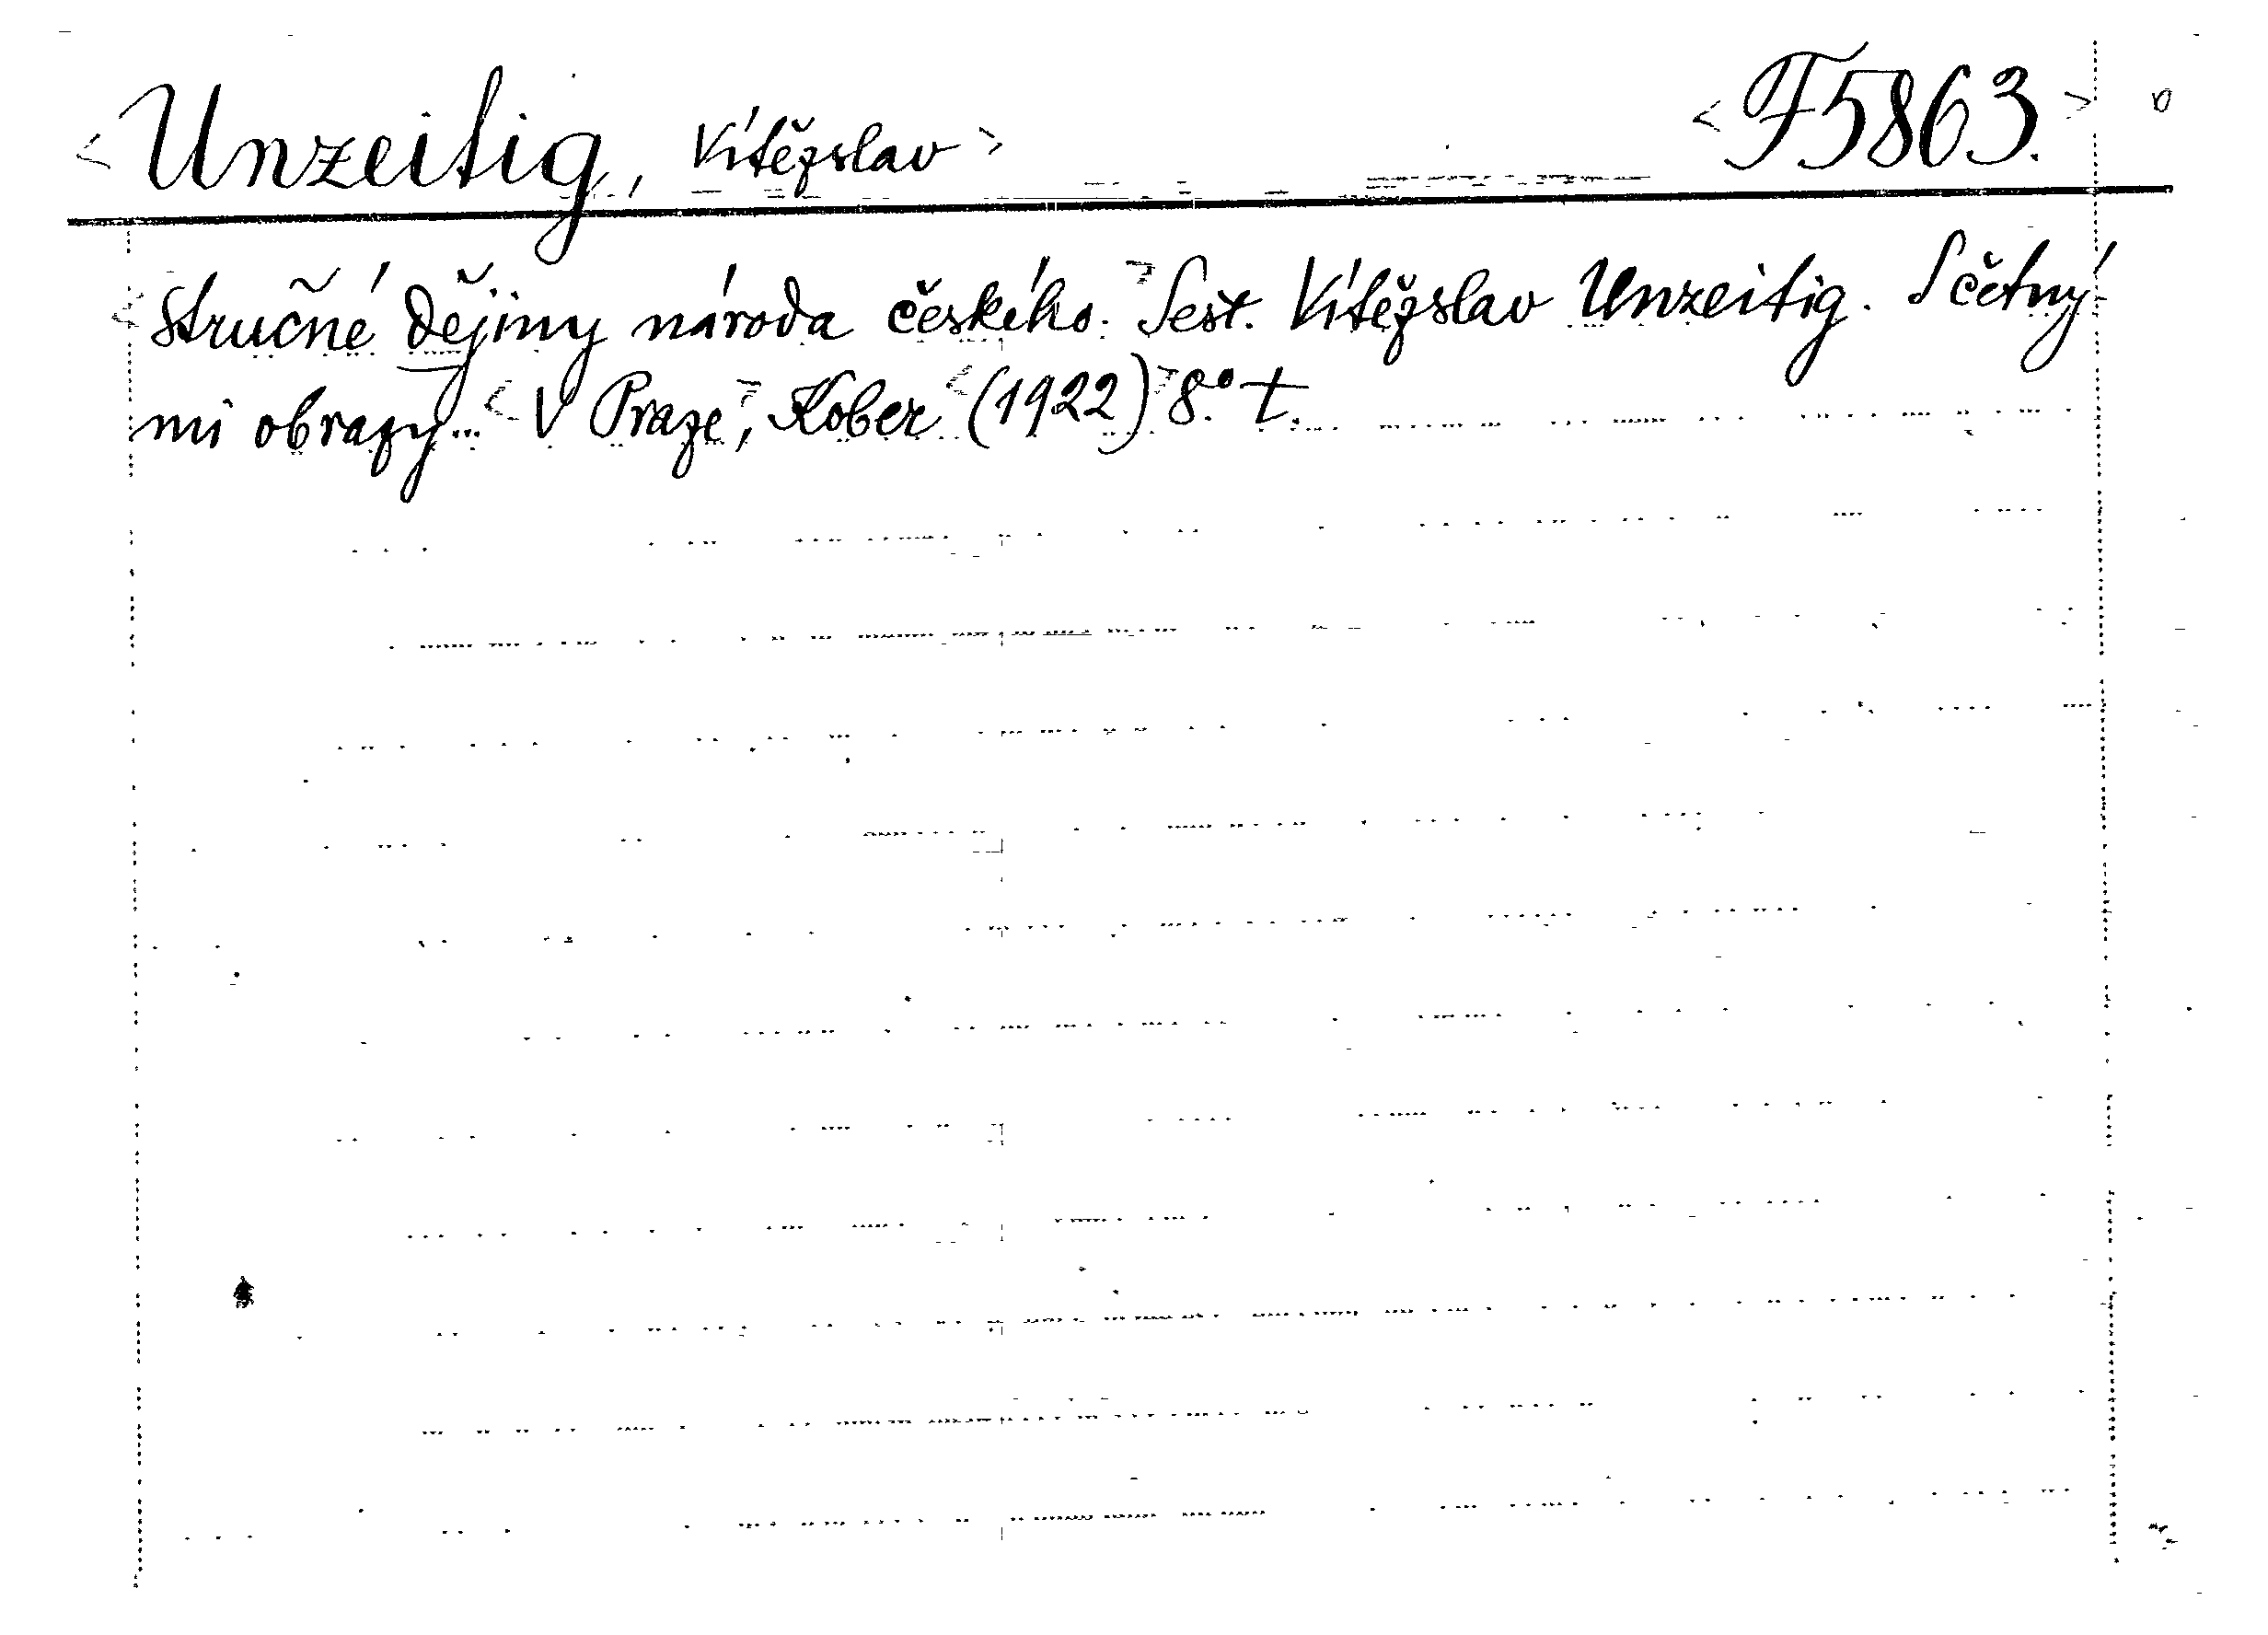 <Unzeitig, Vítězslav> <F5863.>
<Stručné dějiny národa českého.> Sest. Vítězslav Unzeitig. S četný-
mi obrazy... <V Praze>, Kober <(1922)> 8.° t.